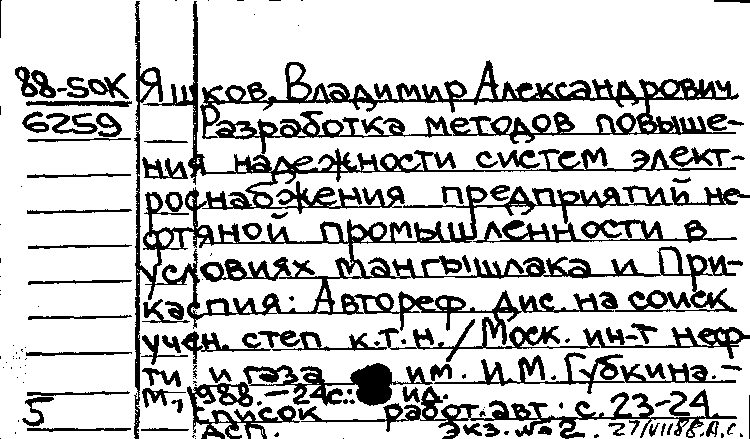 88-50K Яшков, Владимир Александрович
6259 Разработка методов повыше-
ния надежности систем элект-
роснабжения предприятий не-
фтяной промышленности в
условиях мангышлака и При-
каспия: Автореф. дис. на соиск
учен. степ к.т.н. / Моск. ин-т неф
ти и газа им. И.М. Губкина. –
м, 1988. – 24с.: ил.
5 список работ. авт.: с. 23-24.
АСП. Экз. №2. 27/VII88.А.С.